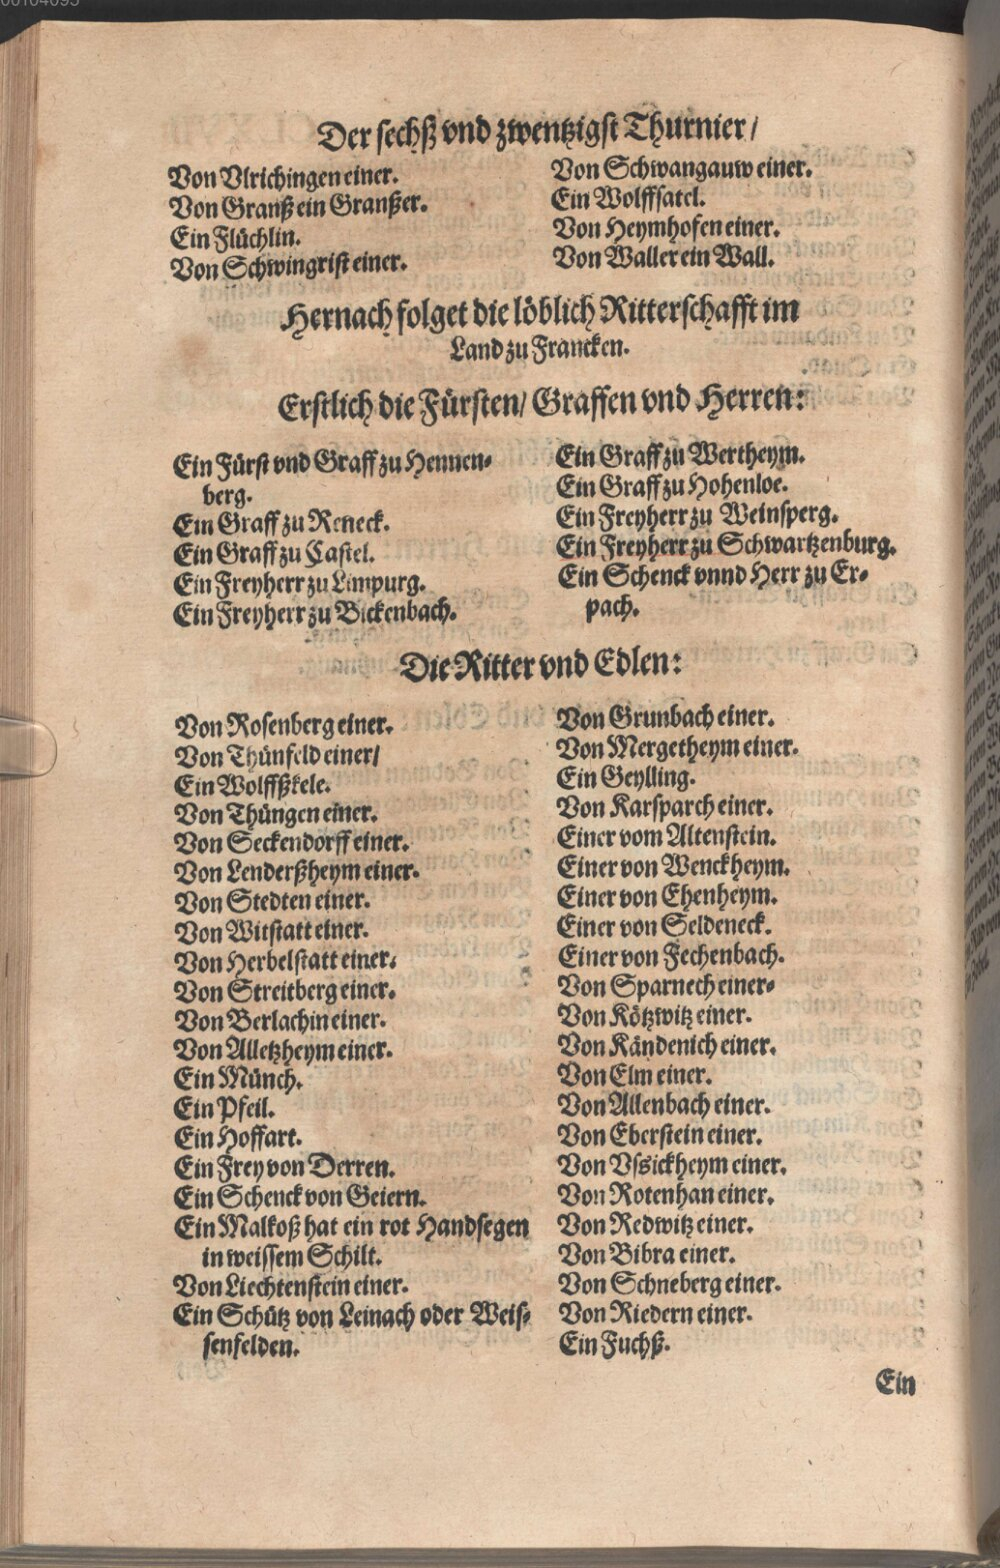 Der sechß vnd zwentzigst Thurnier/
Von Vlrichingen einer.
Von Granß ein Granßer.
Ein Flüchlin.
Von Schwingrist einer.
Von Schwangauw einer.
Ein Wolffsatel.
Von Heymhofen einer.
Von Waller ein Wall.
Hernach folget die löblich Ritterschafft im
Land zu Francken.
Erstlich die Fürsten/ Graffen vnd Herren:
Ein Fürst vnd Graff zu Hennen-
berg.
Ein Graff zu Reneck.
Ein Graff zu Castel.
Ein Freyherr zu Limpurg.
Ein Freyherr zu Bickenbach.
Ein Graff zu Wertheym.
Ein Graff zu Hohenloe.
Ein Freyherr zu Weinsperg.
Ein Freyherr zu Schwartzenburg.
Ein Schenck vnnd Herr zu Er-
pach.
Die Ritter vnd Edlen:
Von Rosenberg einer.
Von Thünfeld einer/
Ein Wolffßkele.
Von Thüngen einer.
Von Seckendorff einer.
Von Lenderßheym einer.
Von Stedten einer.
Von Witstatt einer.
Von Herbelstatt einer.
Von Streitberg einer.
Von Berlachin einer.
Von Alletzheym einer.
Ein Münch.
Ein Pfeil.
Ein Hoffart.
Ein Frey von Derren.
Ein Schenck von Geiern.
Ein Malkoß hat ein rot Handsegen
in weissem Schilt.
Von Liechtenstein einer.
Ein Schütz von Leinach oder Weis-
senfelden.
Von Grunbach einer.
Von Mergetheym einer.
Ein Geylling.
Von Karsparch einer.
Einer vom Altenstein.
Einer von Wenckheym.
Einer von Ehenheym.
Einer von Seldeneck.
Einer von Fechenbach.
Von Sparnech einer-
Von Kötzwitz einer.
Von Kändenich einer.
Von Elm einer.
Von Allenbach einer.
Von Eberstein einer.
Von Vssickheym einer.
Von Rotenhan einer.
Von Redwitz einer.
Von Bibra einer.
Von Schneberg einer.
Von Riedern einer.
Ein Fuchß.
Ein